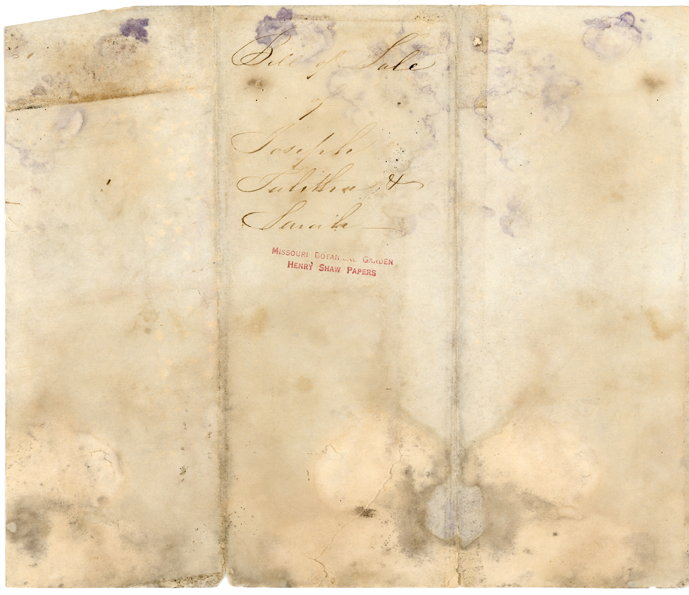 Bill of Sale
of
Joseph
Tabitha &
Sarah
MISSOURI BOTANICAL GARDEN
HENRY SHAW PAPERS